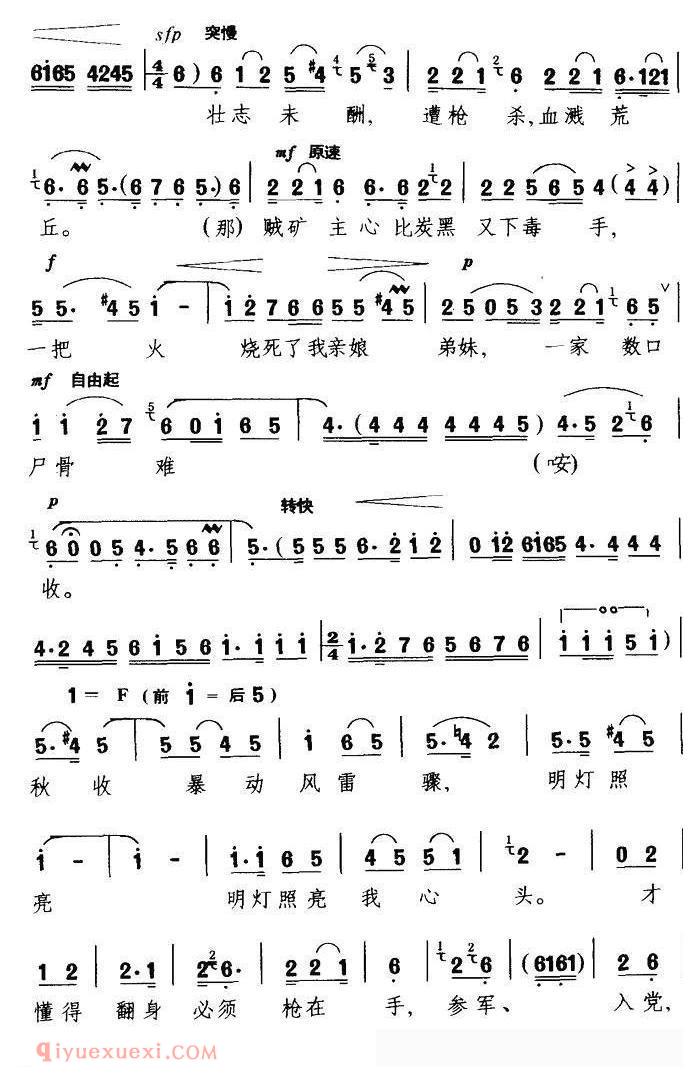 sfp 突慢
6165 4245 4/4 6) 6 1 2 5 #4 5 3 | 2 2 1 6 2 2 1 6·121
壮志未酬，遭枪杀，血溅荒
mf 原速
6· 6 5·(6 7 6 5·)6 | 2 2 1 6 6·6 2 2 | 2 2 5 6 5 4 (4 4)
丘。(那)贼矿主心比炭黑又下毒手，
f p
5 5· #4 5 1 - | 1 2 7 6 6 5 5 #4 5 | 2 5 0 5 3 2 2 1 6 5
一把火烧死了我亲娘弟妹，一家数口
mf 自由起
1 1 2 7 6 0 1 6 5 | 4·(4 4 4 4 4 4 5) 4·5 2 6
尸骨难(安)
p 转快
6 0 0 5 4·5 6 6 | 5·(5 5 5 6·2 1 2 | 0 12 6165 4·4 4 4
收。
4·2 4 5 6 1 5 6 1·1 1 1 | 2/4 1·2 7 6 5 6 7 6 | 1 1 1 5 1)
1= F (前 1=后5)
5·#4 5 | 5 5 4 5 | 1 6 5 | 5·♮4 2 | 5·5 #4 5
秋收暴动风雷骤，明灯照
1 - | 1 - | 1·1 6 5 | 4 5 5 1 | 2 - | 0 2
亮明灯照亮我心头。才
1 2 | 2·1 | 2 6· | 2 2 1 | 6 | 2 6 | (6161) | 2 6
懂得翻身必须枪在手，参军、入党，
Qiyuexuexi.com